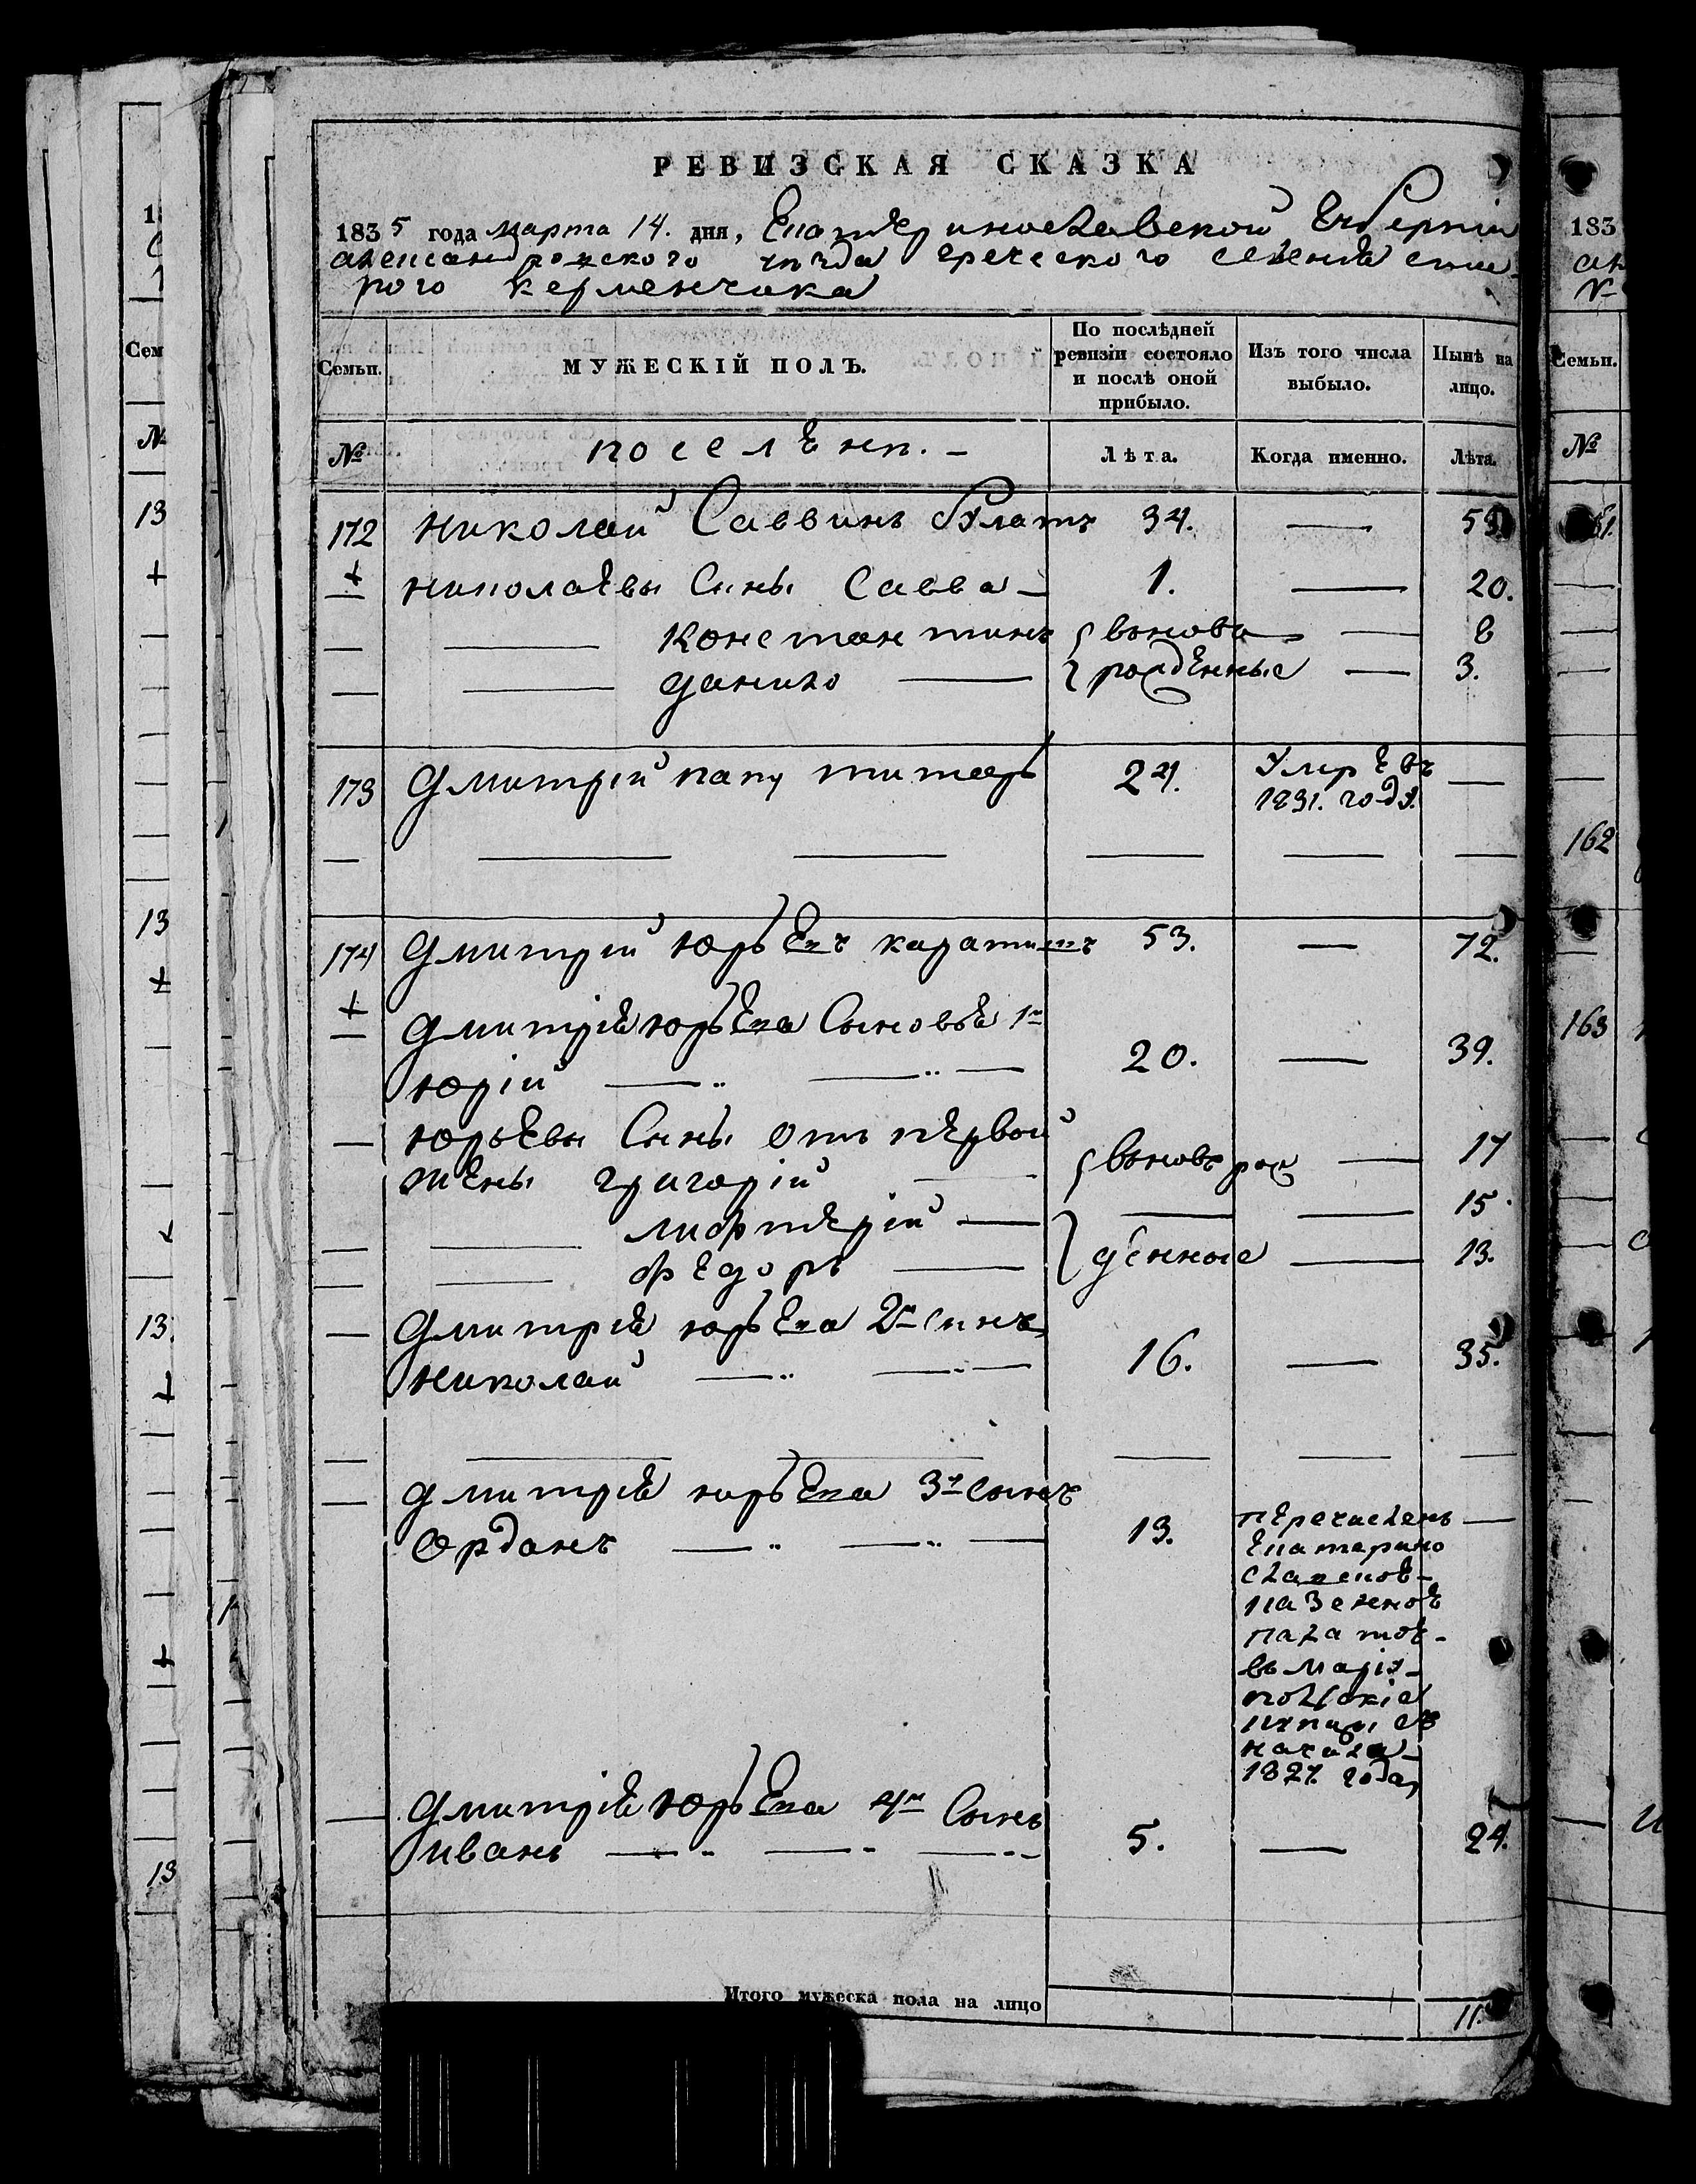 РЕВИЗСКАЯ СКАЗКА
1835 года марта 14. дня, Екатеринославской Губерніи
александровского уезда греческого селенія ста-
рого керменчика
Семьи.
МУЖЕСКІЙ ПОЛЪ.
По послѣдней ревизіи состояло и послѣ оной прибыло.
Изъ того числа выбыло.
Нынѣ на лицо.
№ поселѣнп. - Лѣта. Когда именно. Лѣта.
172 николай Саввинъ 34. — 53
+ николаевы Сины Савва — 1. — 20.
— — Константинъ вьновь — 8
— — данило — рожденные — 3.
173 дмитрій папу 24. Умре въ —
1831. году.
174 дмитрий юрьевъ каратинъ 53. — 72.
+ дмитрія юрьева Сыновья 1й
юрій — — 20. — 39.
— юрьевы Сины отъ первой
жены григорій — вьновь рож — 17
лифтерій — — — 15.
— — федоръ — денные — 13.
— дмитрия юрьева 2й синъ
николай — — 16. — 35.
— дмитрия юрьева 3й сынъ
юрданъ — — 13. перечисленъ —
Екатерино
славскоє
казенноє
палатоє
въ маріу-
польскіе
начала
1827. года
— дмитрія юрьева 4й Сынъ
иванъ — — 5. — 24.
Итого мужеска пола на лицо 11.
183
Семьи.
№
162
163
Сем
13
13
13
13